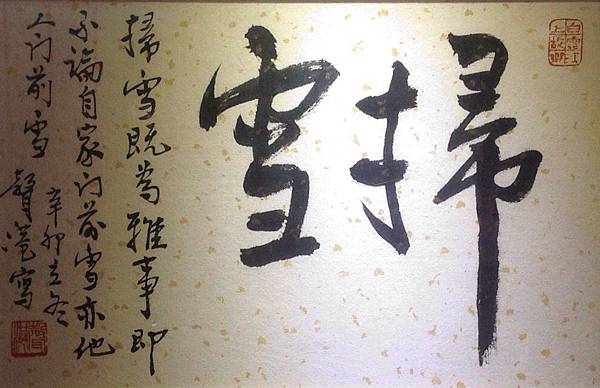 掃雪
掃雪既為雅事即
不論自家门前雪亦他
人门前雪
辛卯立冬
寫